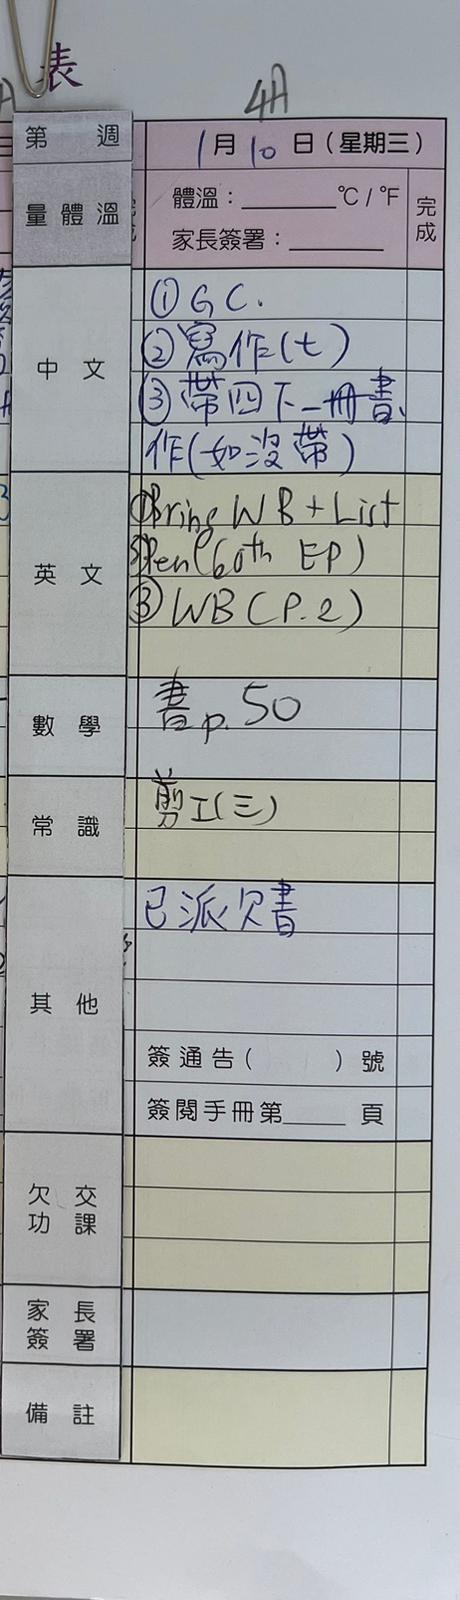 表
4A
第 週 1月10日(星期三)
量體溫 體溫:________℃/℉ 完成
家長簽署:________
中文
①GC.
②寫作(七)
③帶四下一冊書、
作(如沒帶)
英文
①Bring WB + List
Pen(60th EP)
③WB(P.2)
數學
書p.50
常識
剪工(三)
其他
已派欠書
簽通告( )號
簽閱手冊第_____頁
欠交功課
家長簽署
備註